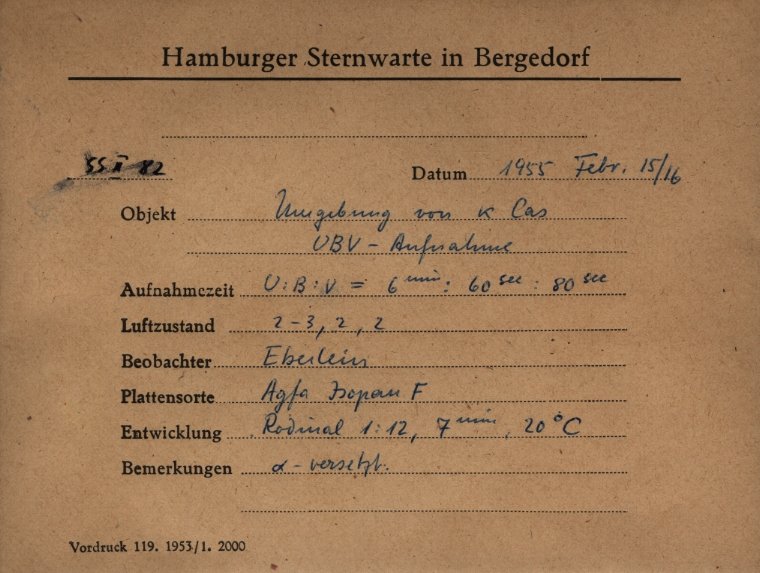 Hamburger Sternwarte in Bergedorf
SS II 82
Datum 1955 Febr. 15/16
Objekt Umgebung von κ Cas
UBV - Aufnahme
Aufnahmezeit U:B:V = 6 min : 60 sec : 80 sec
Luftzustand 2-3, 2, 2
Beobachter Eberlein
Plattensorte Agfa Isopan F
Entwicklung Rodinal 1:12, 7 min, 20°C
Bemerkungen α - versetzt.
Vordruck 119. 1953/1. 2000